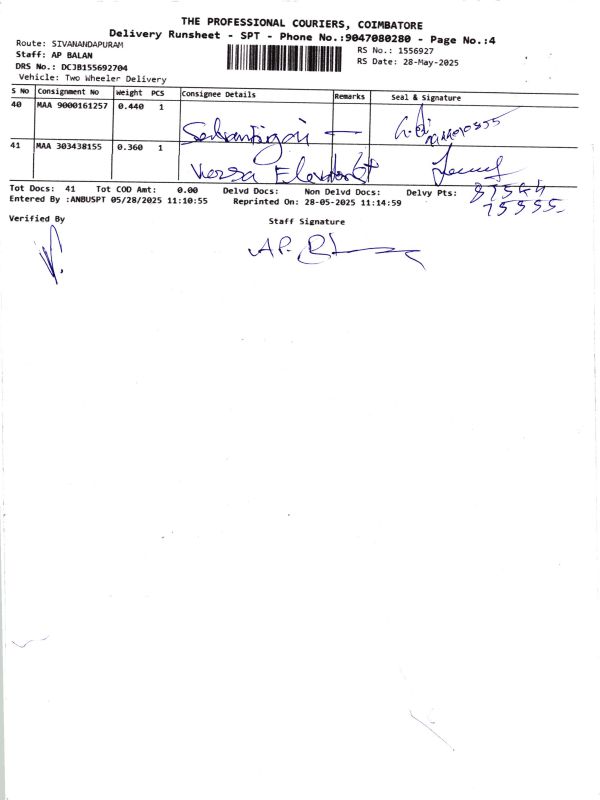 THE PROFESSIONAL COURIERS, COIMBATORE
Delivery Runsheet - SPT - Phone No.:9047080280 - Page No.:4
Route: SIVANANDAPURAM
Staff: AP BALAN
DRS No.: DCJB155692704
Vehicle: Two Wheeler Delivery
RS No.: 1556927
RS Date: 28-May-2025
S No Consignment No Weight PCS Consignee Details Remarks Seal & Signature
40 MAA 9000161257 0.440 1
41 MAA 303438155 0.360 1
Tot Docs: 41 Tot COD Amt: 0.00 Delvd Docs: Non Delvd Docs: Delvy Pts:
Entered By :ANBUSPT 05/28/2025 11:10:55 Reprinted On: 28-05-2025 11:14:59
Verified By Staff Signature